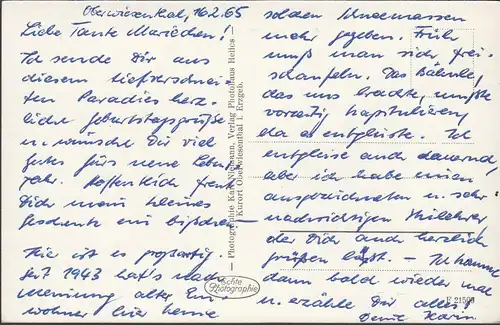 Oberwiesenthal, 16.2.65
Liebe Tante Mariechen!
Ich sende Dir aus
diesem tiefverschnei-
ten Paradies herz-
liche Geburtstagsgrüße
u. wünsche Dir viel
gutes fürs neue Lebens-
jahr. Hoffentlich freut
Dich mein kleines
Geschenk ein bißchen.
Hier ist es großartig.
Seit 1943 hat's nach
Meinung alter Ein-
wohner hier keine
Photographie Karl Niemann, Verlag Photohaus Helios
Kurort Oberwiesenthal i. Erzgeb.
Echte
Photographie
solchen Schneemassen
mehr gegeben. Früh
muß man sich frei-
schaufeln. Das Bähnle,
das uns brachte, mußte
vorzeitig kapitulieren,
da es entgleiste. Ich
entgleise auch dauernd,
aber ich habe einen
ausgezeichneten u. sehr
nachsichtigen Skilehrer
der Dich auch herzlich
grüßen läßt. – Ich komme
dann bald wieder mal
u. erzähle Dir alles!
Deine Karin